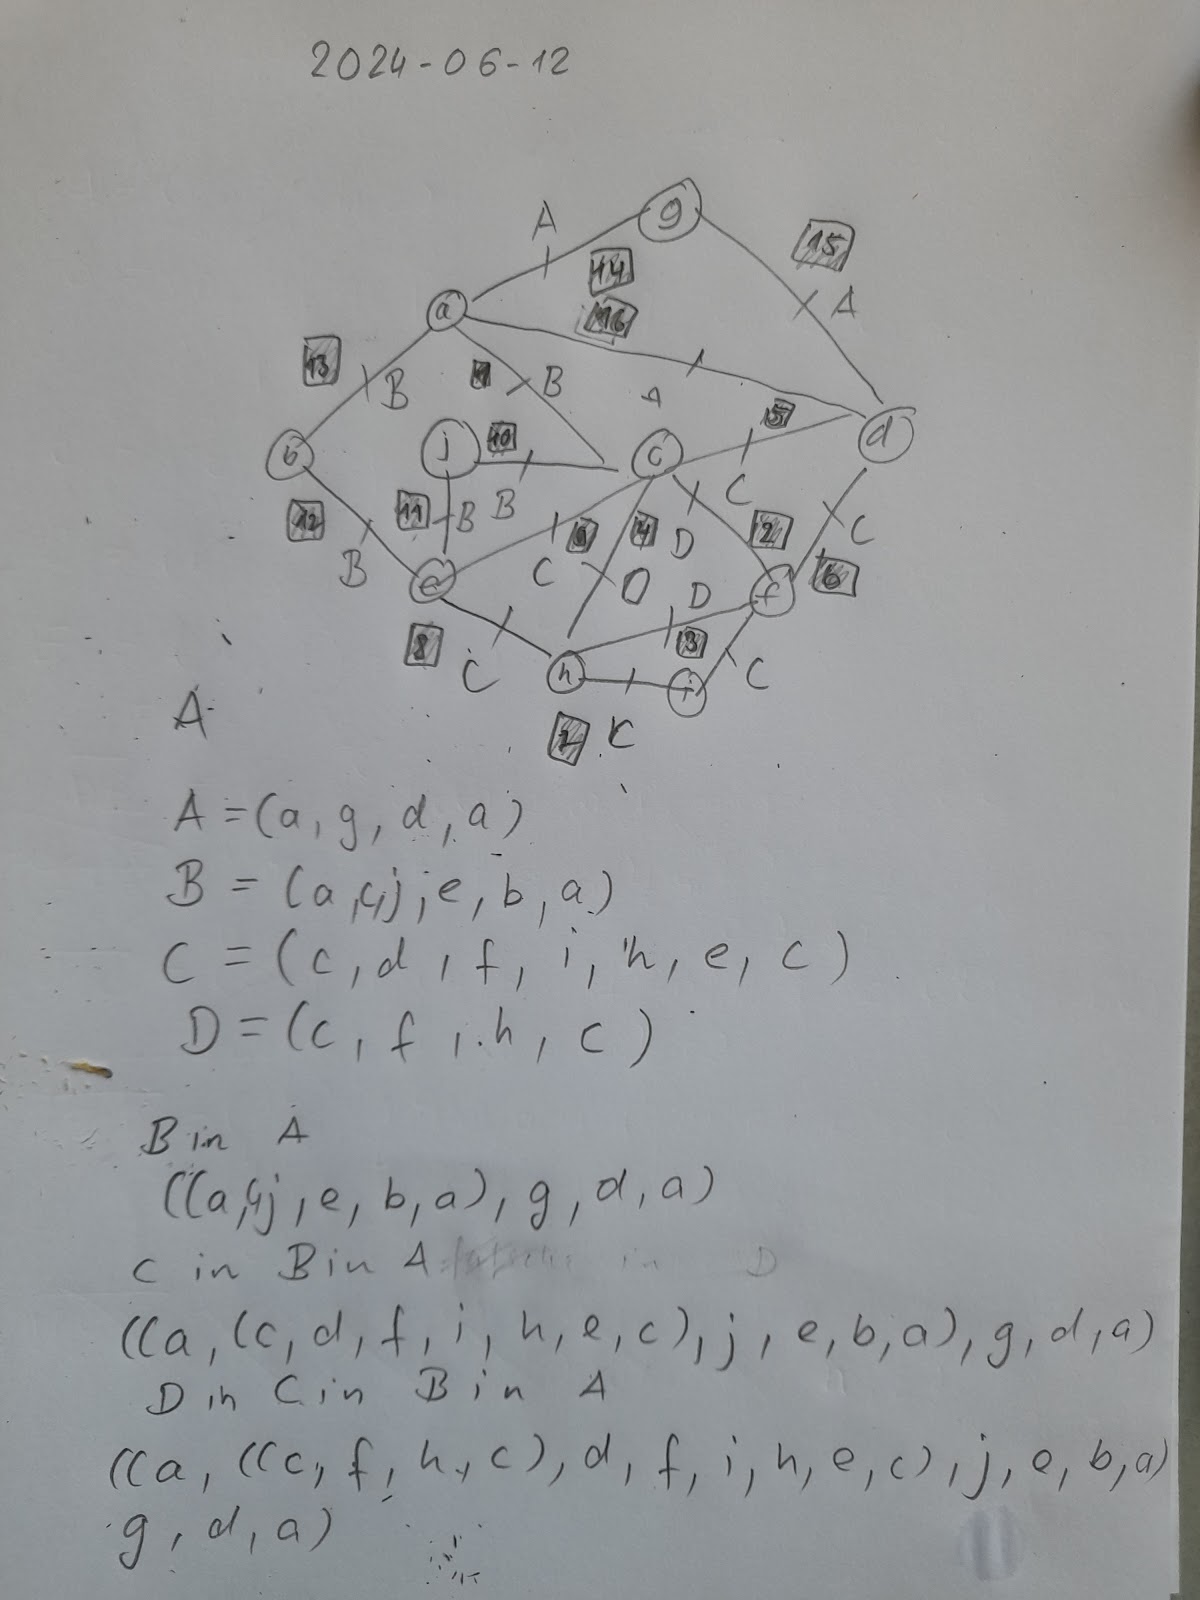 2024-06-12
A
g
15
14
A
16
a
13
B
1
B
A
5
d
b
j
10
c
C
12
11
B
B
D
2
C
B
6
4
C
D
6
e
f
8
C
3
C
h
i
C
A
A = (a, g, d, a)
B = (a, c, j, e, b, a)
C = (c, d, f, i, h, e, c)
D = (c, f, h, c)
B in A
((a, c, j, e, b, a), g, d, a)
C in B in A
((a, (c, d, f, i, h, e, c), j, e, b, a), g, d, a)
D in C in B in A
((a, ((c, f, h, c), d, f, i, h, e, c), j, e, b, a)
g, d, a)